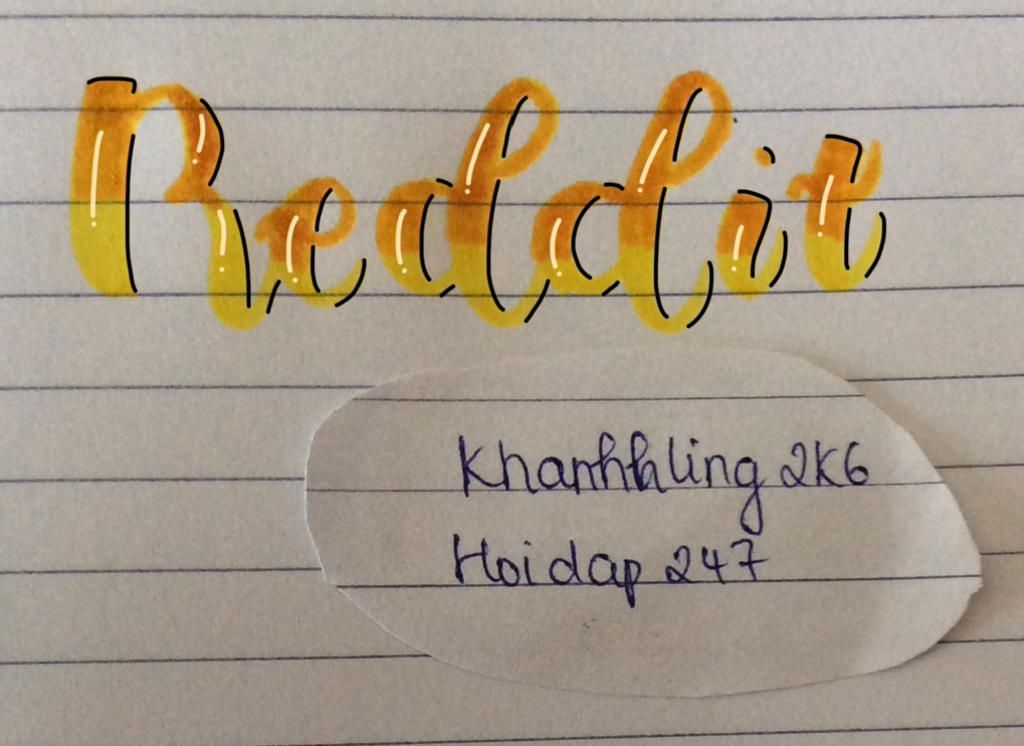 Reddit
Khanhhling 2K6
Hoidap 247